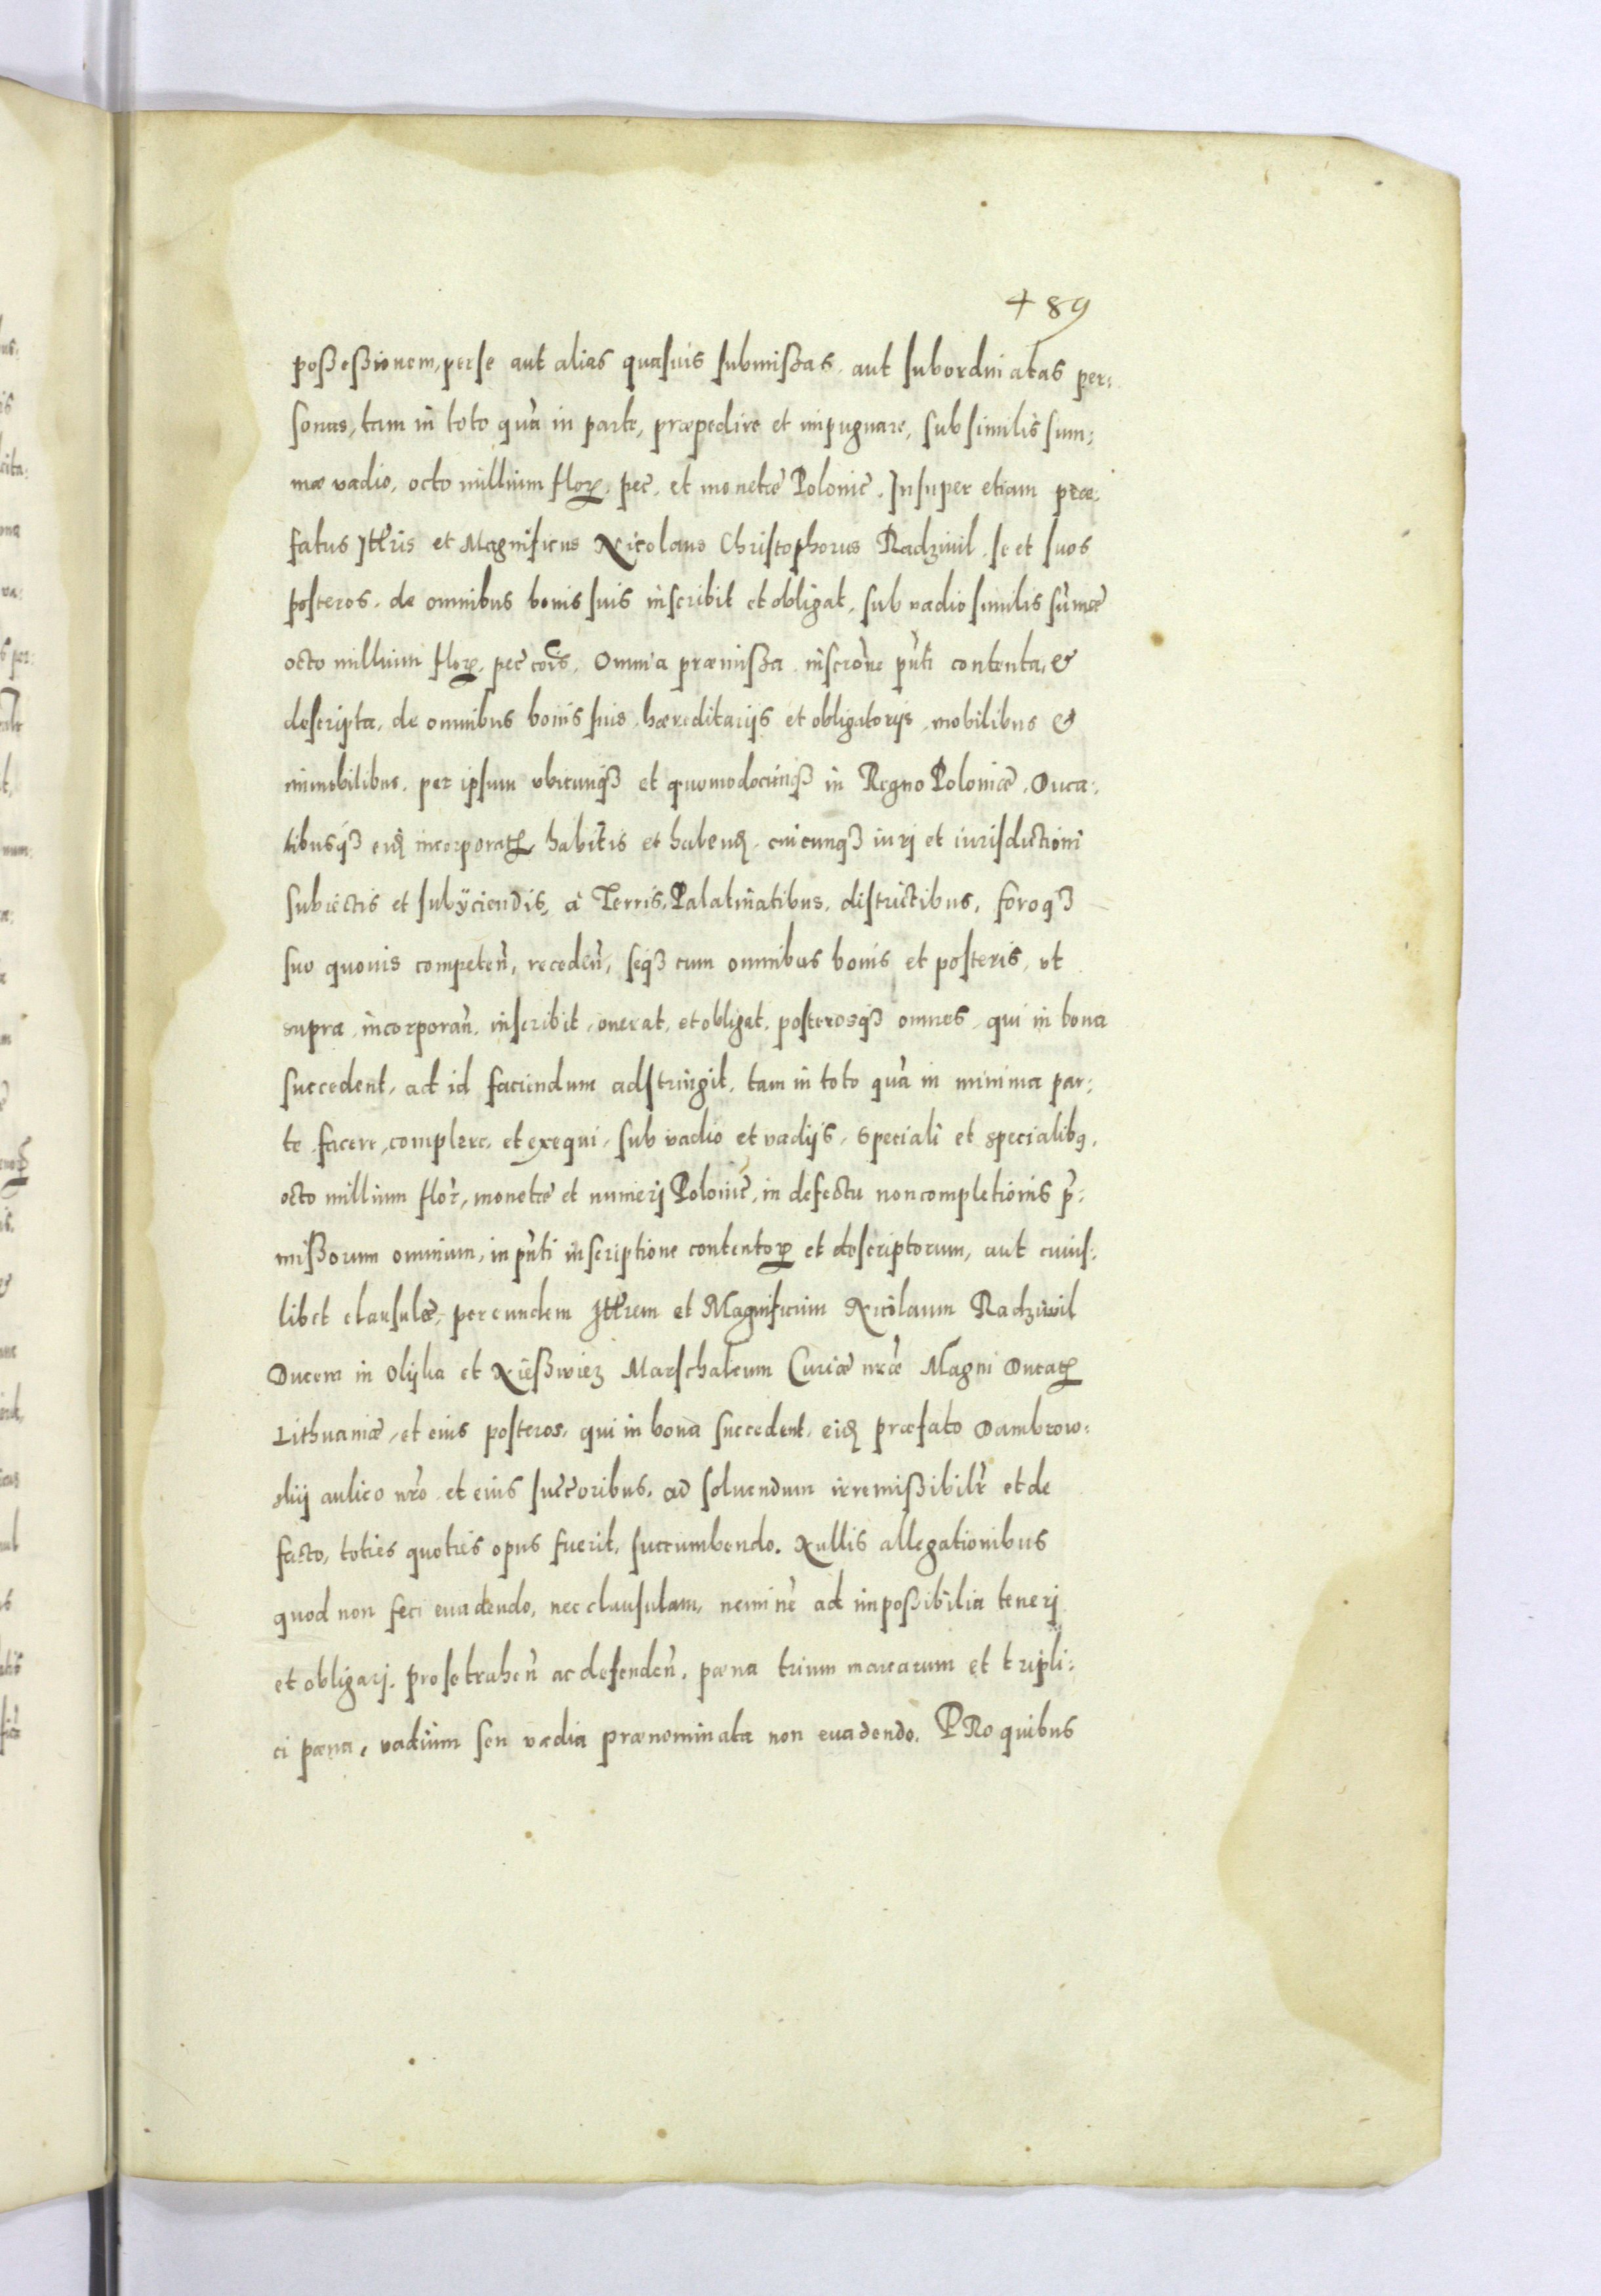 489
poßeßionem, per se aut alias quasuis submißas, aut subordinatas per:
sonas, tam in toto quā in parte, præpedire et impugnare, sub similis sum:
mæ vadio, octo millium floꝝ. pec̄. et monetæ Polonic̄. Insuper etiam præ:
fatus Ill̄ris et Magnificus Nicolaus Christophorus Radziuil, se et suos
posteros, de omnibus bonis suis inscribit et obligat, sub vadio similis sūmæ
octo millium floꝝ. pec̄ cōis. Omnia præmißa inscrōne pñti contenta, &
descripta, de omnibus bonis suis hæreditarijs et obligatorijs, mobilibus &
immobilibus, per ipsum vbicunqꝫ et quomodocunqꝫ in Regno Poloniæ, Duca:
tibusqꝫ eiđ incorporatꝝ habitis et habenđ, cuicunqꝫ iurj et iurisdictioni
subiectis et subijciendis, à Terris, Palatinatibus, districtibus, foroqꝫ
suo quouis competeñ, recedeñ, seqꝫ cum omnibus bonis et posteris, vt
supra, incorporañ, inscribit, onerat, et obligat, posterosqꝫ omnes, qui in bona
succedent, ad id faciendum adstringit, tam in toto quā in minima par:
te facere, complere, et exequi, sub vadio et vadijs, speciali et specialibꝫ,
octo millium flor̄, monetæ et numerj Polonic̄, in defectu noncompletionis p̄:
mißorum omnium, in pñti inscriptione contentoꝝ et descriptorum, aut cuius:
libet clausulæ, per eundem Ill̄rem et Magnificum Nicolaum Radziwil
Ducem in Olijka et Nießwiez Marschalcum Curiæ nr̄æ Magni Ducatꝝ
Lithuaniæ, et eius posteros, qui in bona succedent, eiđ præfato Dambrow:
skij aulico nr̄o et eius succ̄oribus, ad soluendum irremißibilr̄ et de
facto, toties quoties opus fuerit, succumbendo. Nullis allegationibus
quod non feci euadendo, nec clausulam, neminē ad impoßibilia tenerj
et obligarj, pro se traheñ ac defendeñ, pæna trium marcarum et tripli:
ci pæna, vadium seu vadia prænominata non euadendo. PRo quibus